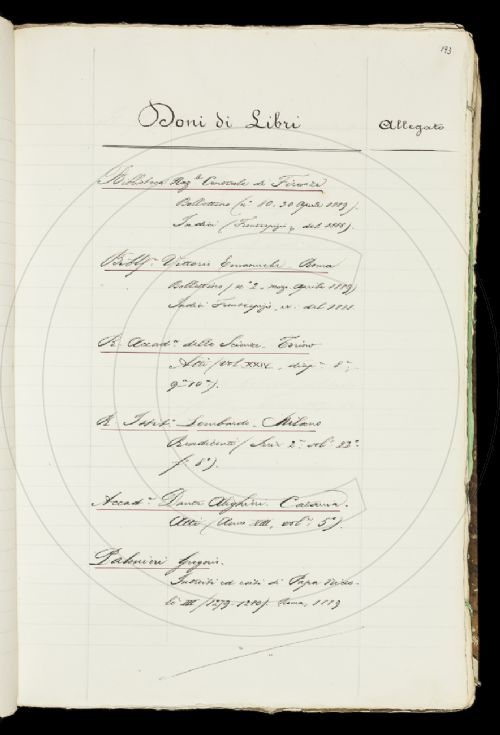 193
Doni di Libri
Allegato
Biblioteca Naz.le Centrale di Firenze
Bollettino (n.° 80. 30 Aprile 1889).
Indici (Frontespizi, del 1888).
Bibl.ca Vittorio Emanuele. Roma
Bollettino (n.° 2. marzo Aprile 1889)
Indici Frontespizi, del 1888.
R. Accad.a delle Scienze. Torino
Atti (vol. XXIV., disp.e 8.a,
9.a 10.a).
R. Istit.o Lombardo. Milano
Rendiconti (Serie 2.a vol.e 22.°
f. 8.°).
Accad.a Dante Alighieri. Catania.
Atti (Anno VIII, vol.e 5.°).
Palmieri Gregorio.
Introiti ed esiti di Papa Nicco-
lò III (1279-1280). Roma, 1889